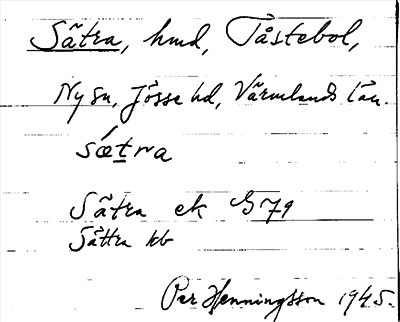 Sätra, hmd, Tåstebol,
Ny sn, Jösse hd, Värmlands län.
sǽtra
Sätra ek G 79
Sättra kb
Per Henningsson 1945.